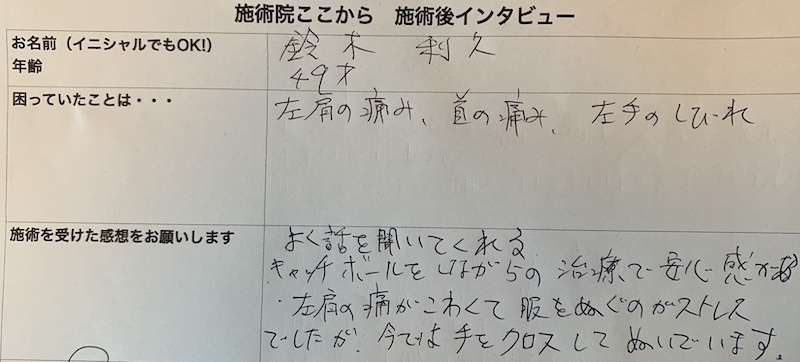 施術院ここから 施術後インタビュー
お名前（イニシャルでもOK!）
鈴木 利久
年齢
49才
困っていたことは・・・
左肩の痛み、首の痛み、左手のしびれ
施術を受けた感想をお願いします
よく話を聞いてくれる
キャッチボールをしながらの治療で安心感がある
・左肩の痛がこわくて服をぬぐのがストレス
でしたが、今では手をクロスしてぬいでいます。